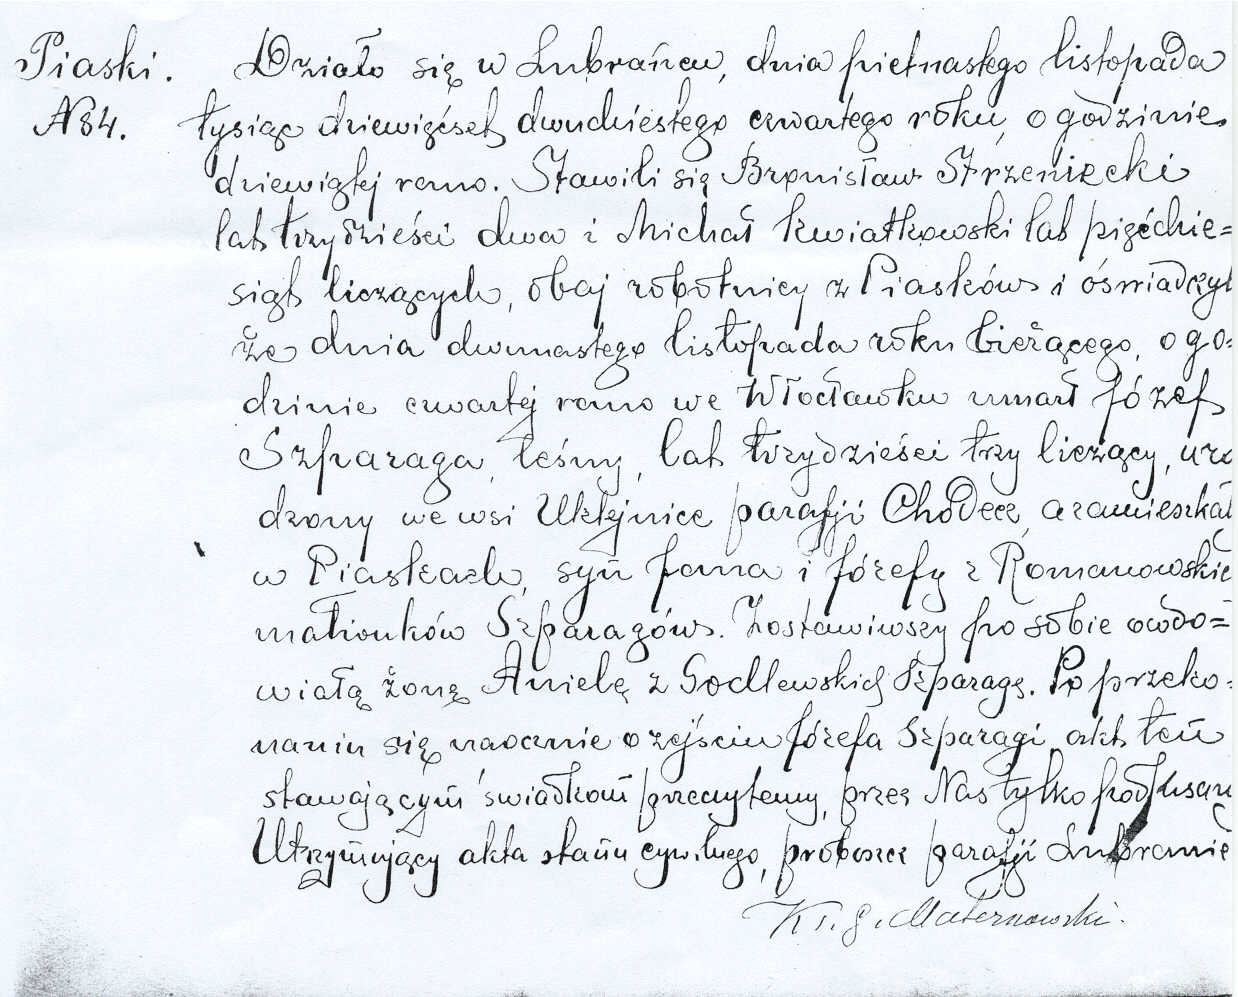 Piaski.
N 84.
Działo się w Lubrańcu, dnia piętnastego listopada
tysiąc dziewięćset dwudziestego czwartego roku, o godzinie
dziewiątej rano. Stawili się Bronisław Strzeniecki
lat trzydzieści dwa i Michał Kwiatkowski lat pięćdzie=
siąt liczących, obaj robotnicy z Piasków i oświadczyl
że dnia dwunastego listopada roku bieżącego, o go=
dzinie czwartej rano we Włocławku umarł Józef
Szparaga, leśny, lat trzydzieści trzy liczący, uro
dzony we wsi Ukłejnice parafji Chodecz, a zamieszkał
w Piaskach, syn Jana i Józefy z Romanowskic
małżonków Szparagów. Zostawiwszy po sobie owdo=
wiałą żonę Anielę z Godlewskich Szparagę. Po przeko=
naniu się naocznie o zejściu Józefa Szparagi, akt ten
stawającym świadkom przeczytany, przez Nas tylko podpisany
Utrzymujący akta stanu cywilnego, proboszcz parafji Lubranie
Ks. J. Maternowski.